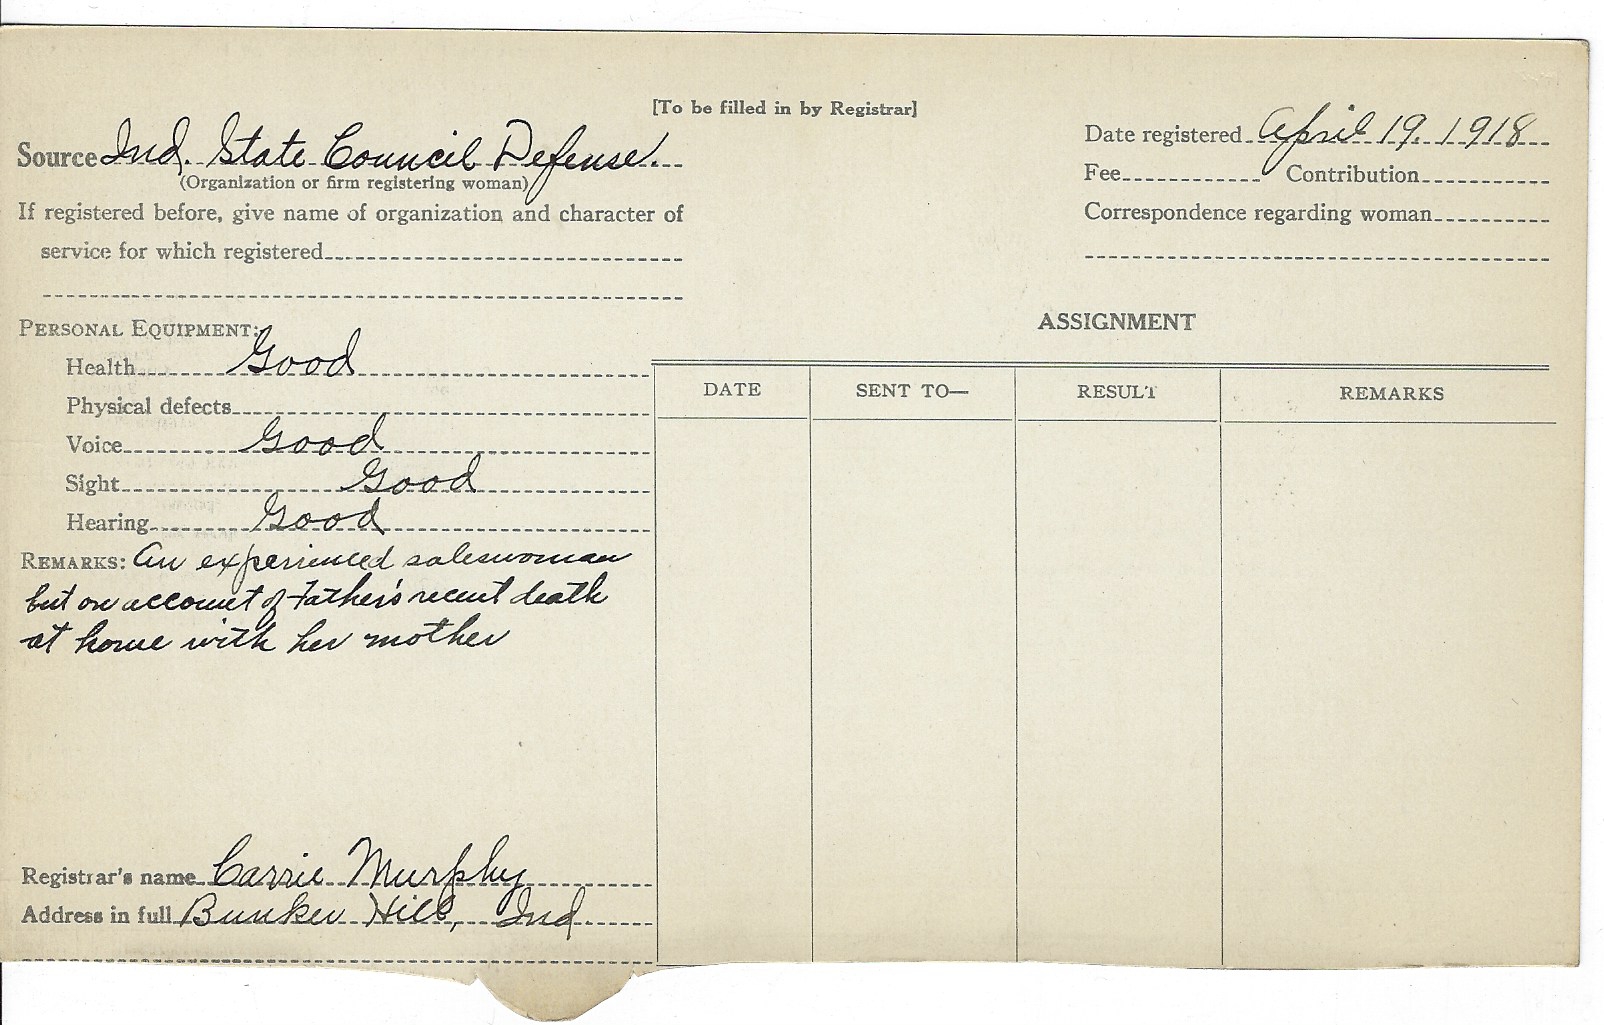 [To be filled in by Registrar]
Source Ind. State Council Defense.
(Organization or firm registering woman)
If registered before, give name of organization and character of
service for which registered
Date registered April 19. 1918
Fee Contribution
Correspondence regarding woman
PERSONAL EQUIPMENT:
Health Good
Physical defects
Voice Good
Sight Good
Hearing Good
REMARKS: An experienced saleswoman
but on account of Father's recent death
at home with her mother
Registrar's name Carrie Murphy
Address in full Bunker Hill, Ind
ASSIGNMENT
DATE SENT TO— RESULT REMARKS